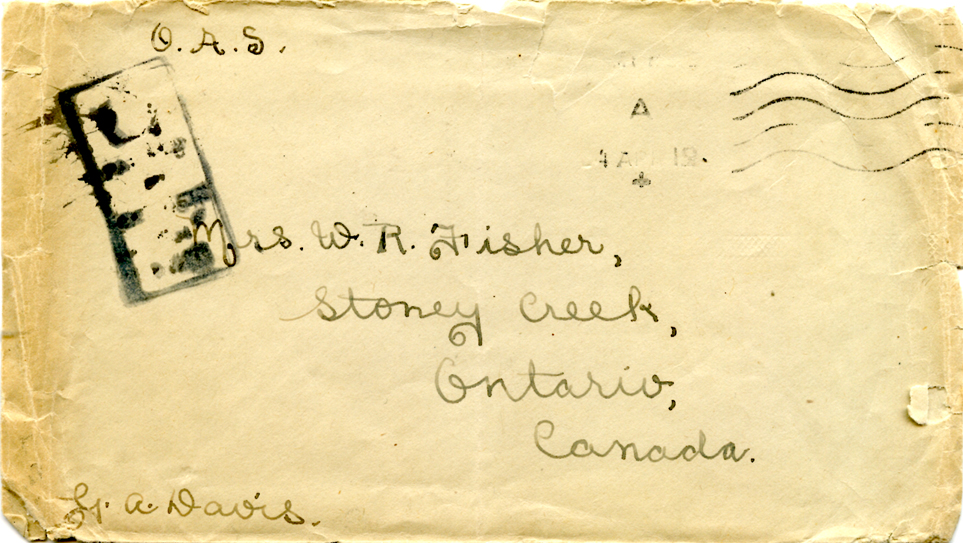 O. A. S.
A
4 APR 18.
Mrs. W. R. Fisher,
Stoney Creek,
Ontario,
Canada.
A. Davis.